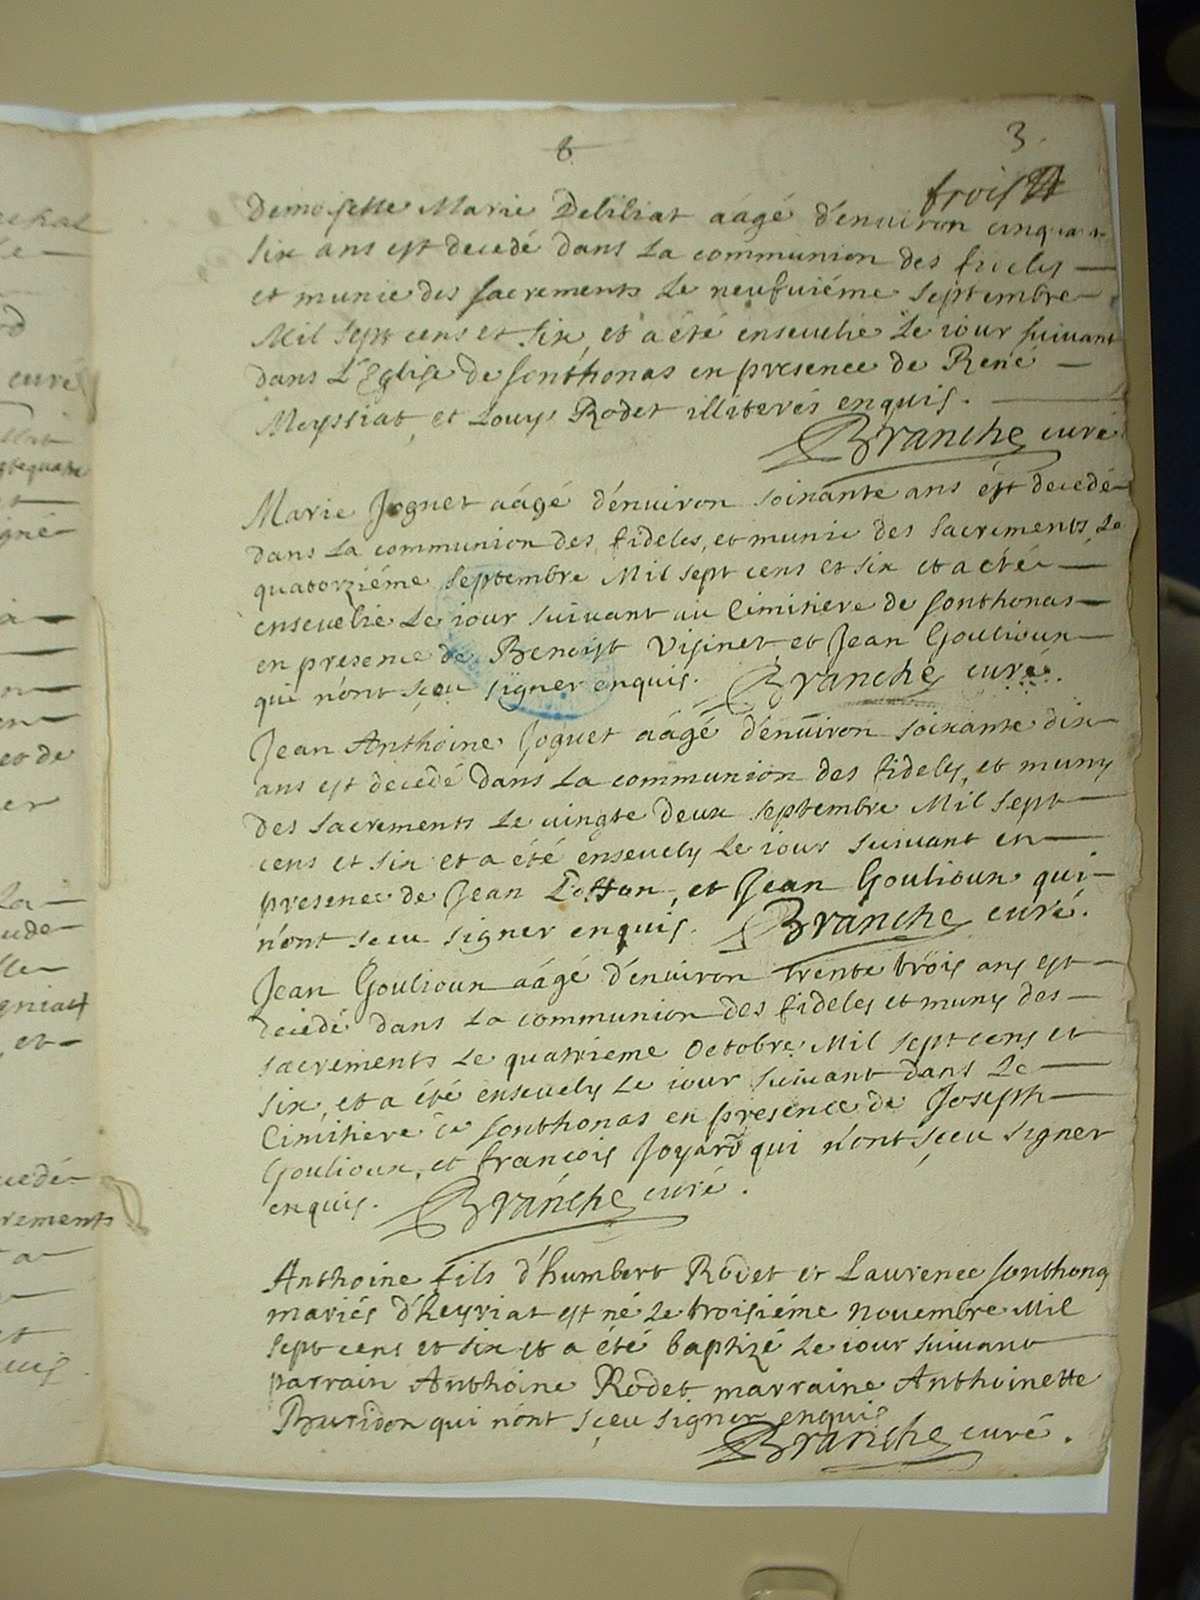 3.
trois
Demoiselle Marie Deliliat aâgé d'enuiron cinquante
six ans est decedé dans la communion des fideles
et munie des sacrements le neufuiéme septembre
Mil sept cens et six, et a été enseuelie le iour suiuant
dans l'Eglise de sonthonas en presence de René
Meyssiat, et Louys Rodet illiterés enquis.
Branche curé
Marie Joguet aâgé d'enuiron soixante ans est decedé
dans la communion des fideles, et munie des sacrements, le
quatorziéme septembre Mil sept cens et six et a été
enseuelie le iour suiuant au Cimitiere de sonthonas
en presence de Benoist Visinet, et Jean Goulioux
qui n'ont sçeu signer enquis. Branche curé.
Jean Anthoine Joguet aâgé d'enuiron soixante dix
ans est decedé dans la communion des fideles, et muny
des sacrements le uingte deux septembre Mil sept
cens et six et a été enseuely le iour suiuant en
presence de Jean et Jean Goulioux qui
n'ont sceu signer enquis. Branche curé.
Jean Goulioux aâgé d'enuiron trente trois ans est
decedé dans la communion des fideles et muny des
sacrements le quatrieme Octobre Mil sept cens et
six, et a été enseuely le iour suiuant dans le
Cimitiere de sonthonas en presence de Joseph
Goulioux, et françois Joyard qui n'ont sçeu signer
enquis. Branche curé.
Anthoine fils d'humbert Rodet et Laurence sonthonas
mariés d'heyriat est né le troisiéme nouembre Mil
sept cens et six et a été baptizé le iour suiuant
parrain Anthoine Rodet marraine Anthoinette
Buridon qui n'ont sçeu signer enquis
Branche curé.